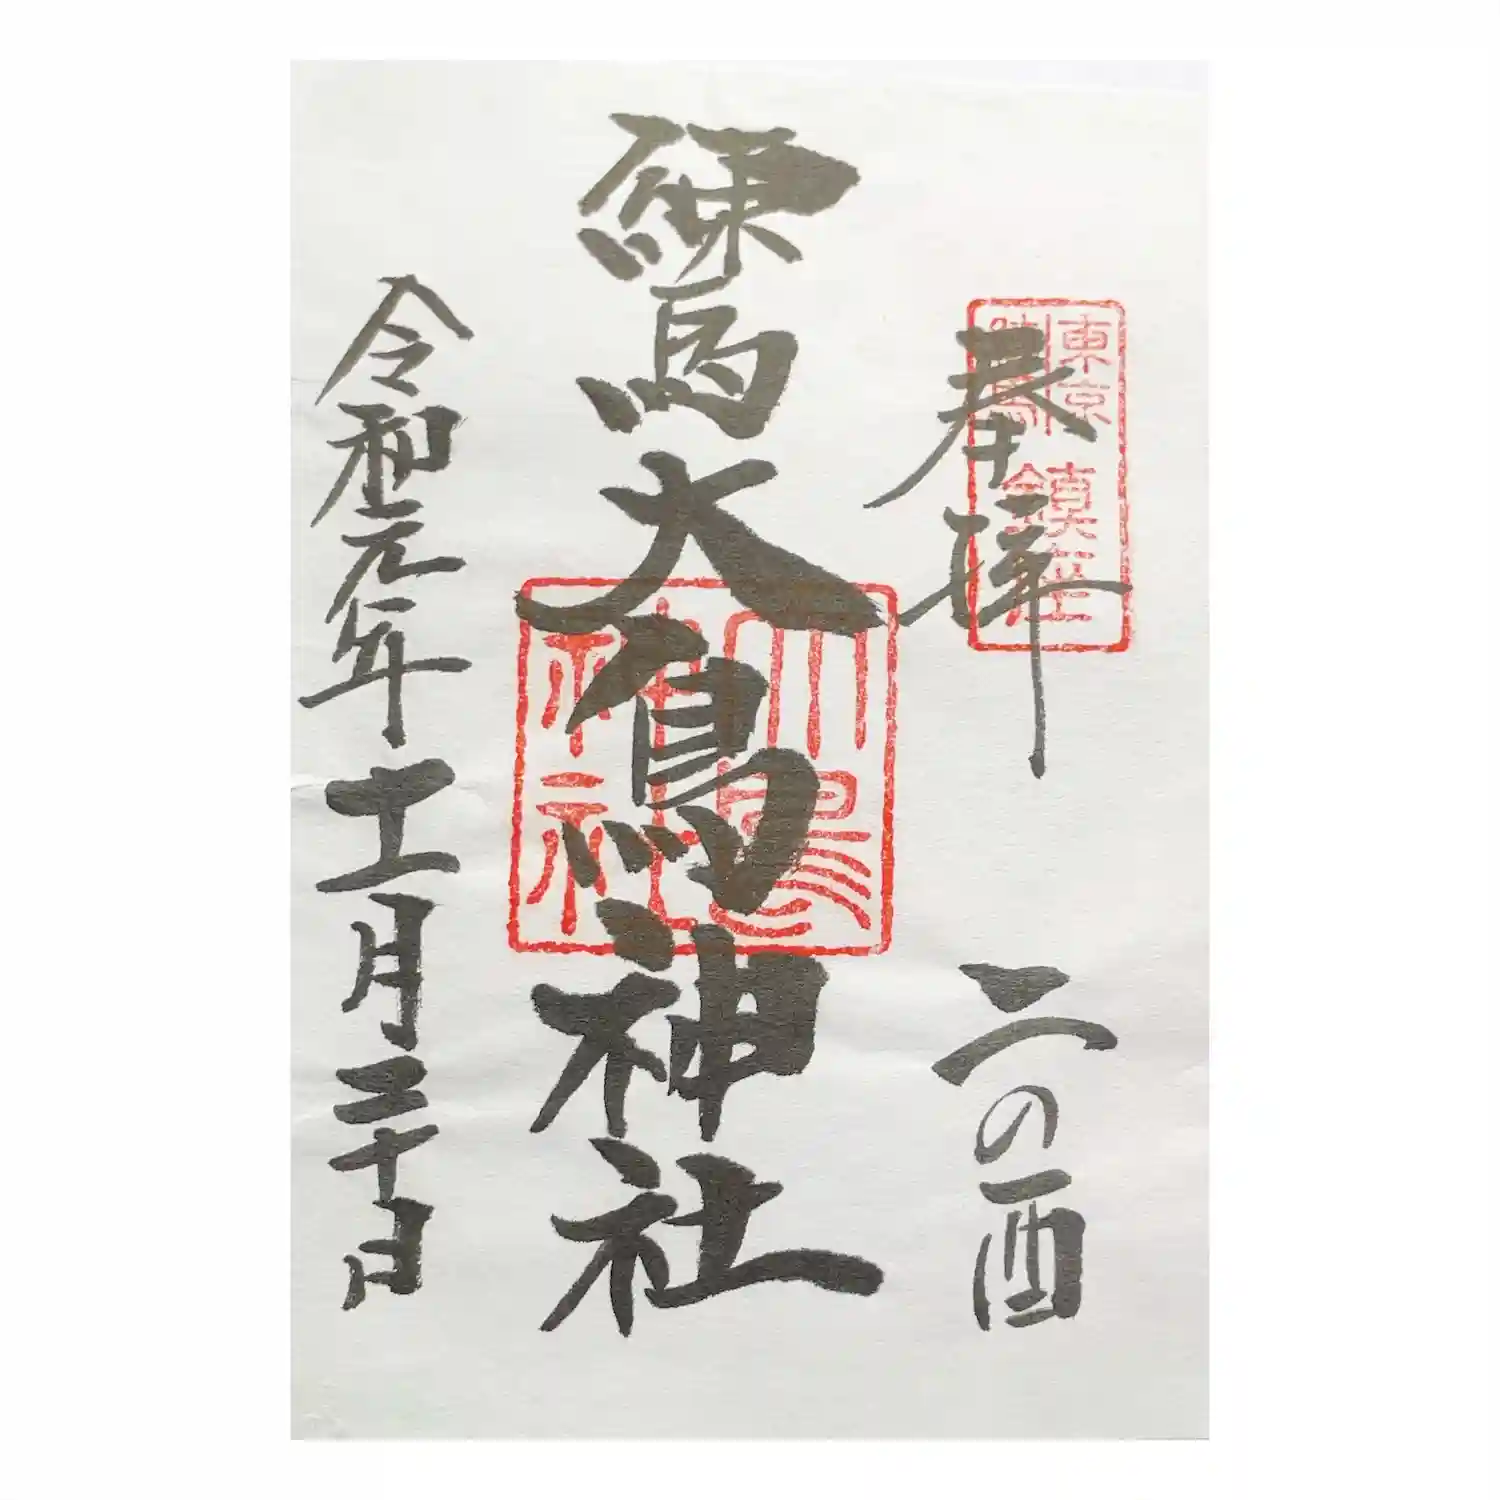 奉拝
二の酉
東京
練馬
鎮座
練馬大鳥神社
大鳥
神社
令和元年十一月二十日